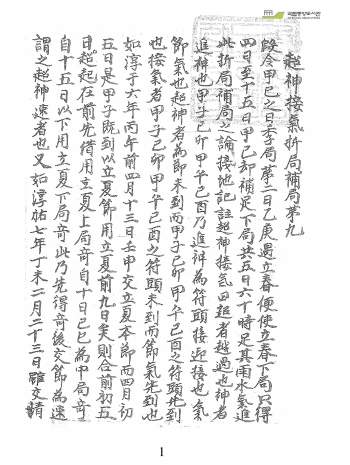 국립중앙도서관
超神接氣折局補局第九
假令甲己之日季局第二日乙庚遇立春便使立春下局只得
四日至十五日甲己却補足下局共五日六十時足其雨水氣進
此折局補局之論接地記註超神接氣曰超者越過也神者
進神也甲子己卯甲午己酉乃進神為符頭接迎接也氣
節氣也超神者為節未到而甲子己卯甲午己酉之符頭先到
也接氣者甲子己卯甲午己酉之符頭未到而節氣先到也
如淳于六年丙午前四月十三日壬甲交立夏本節而四月初
五日是甲子既到以立夏節用立夏前九日矣則合前初五
日起超在前先借用立夏上局奇自十日己巳為中局奇
自十五日以下用立夏下局奇此乃先得奇後交節為速
謂之超神速者也又如淳祐七年丁未二月二十三日雖交清
1